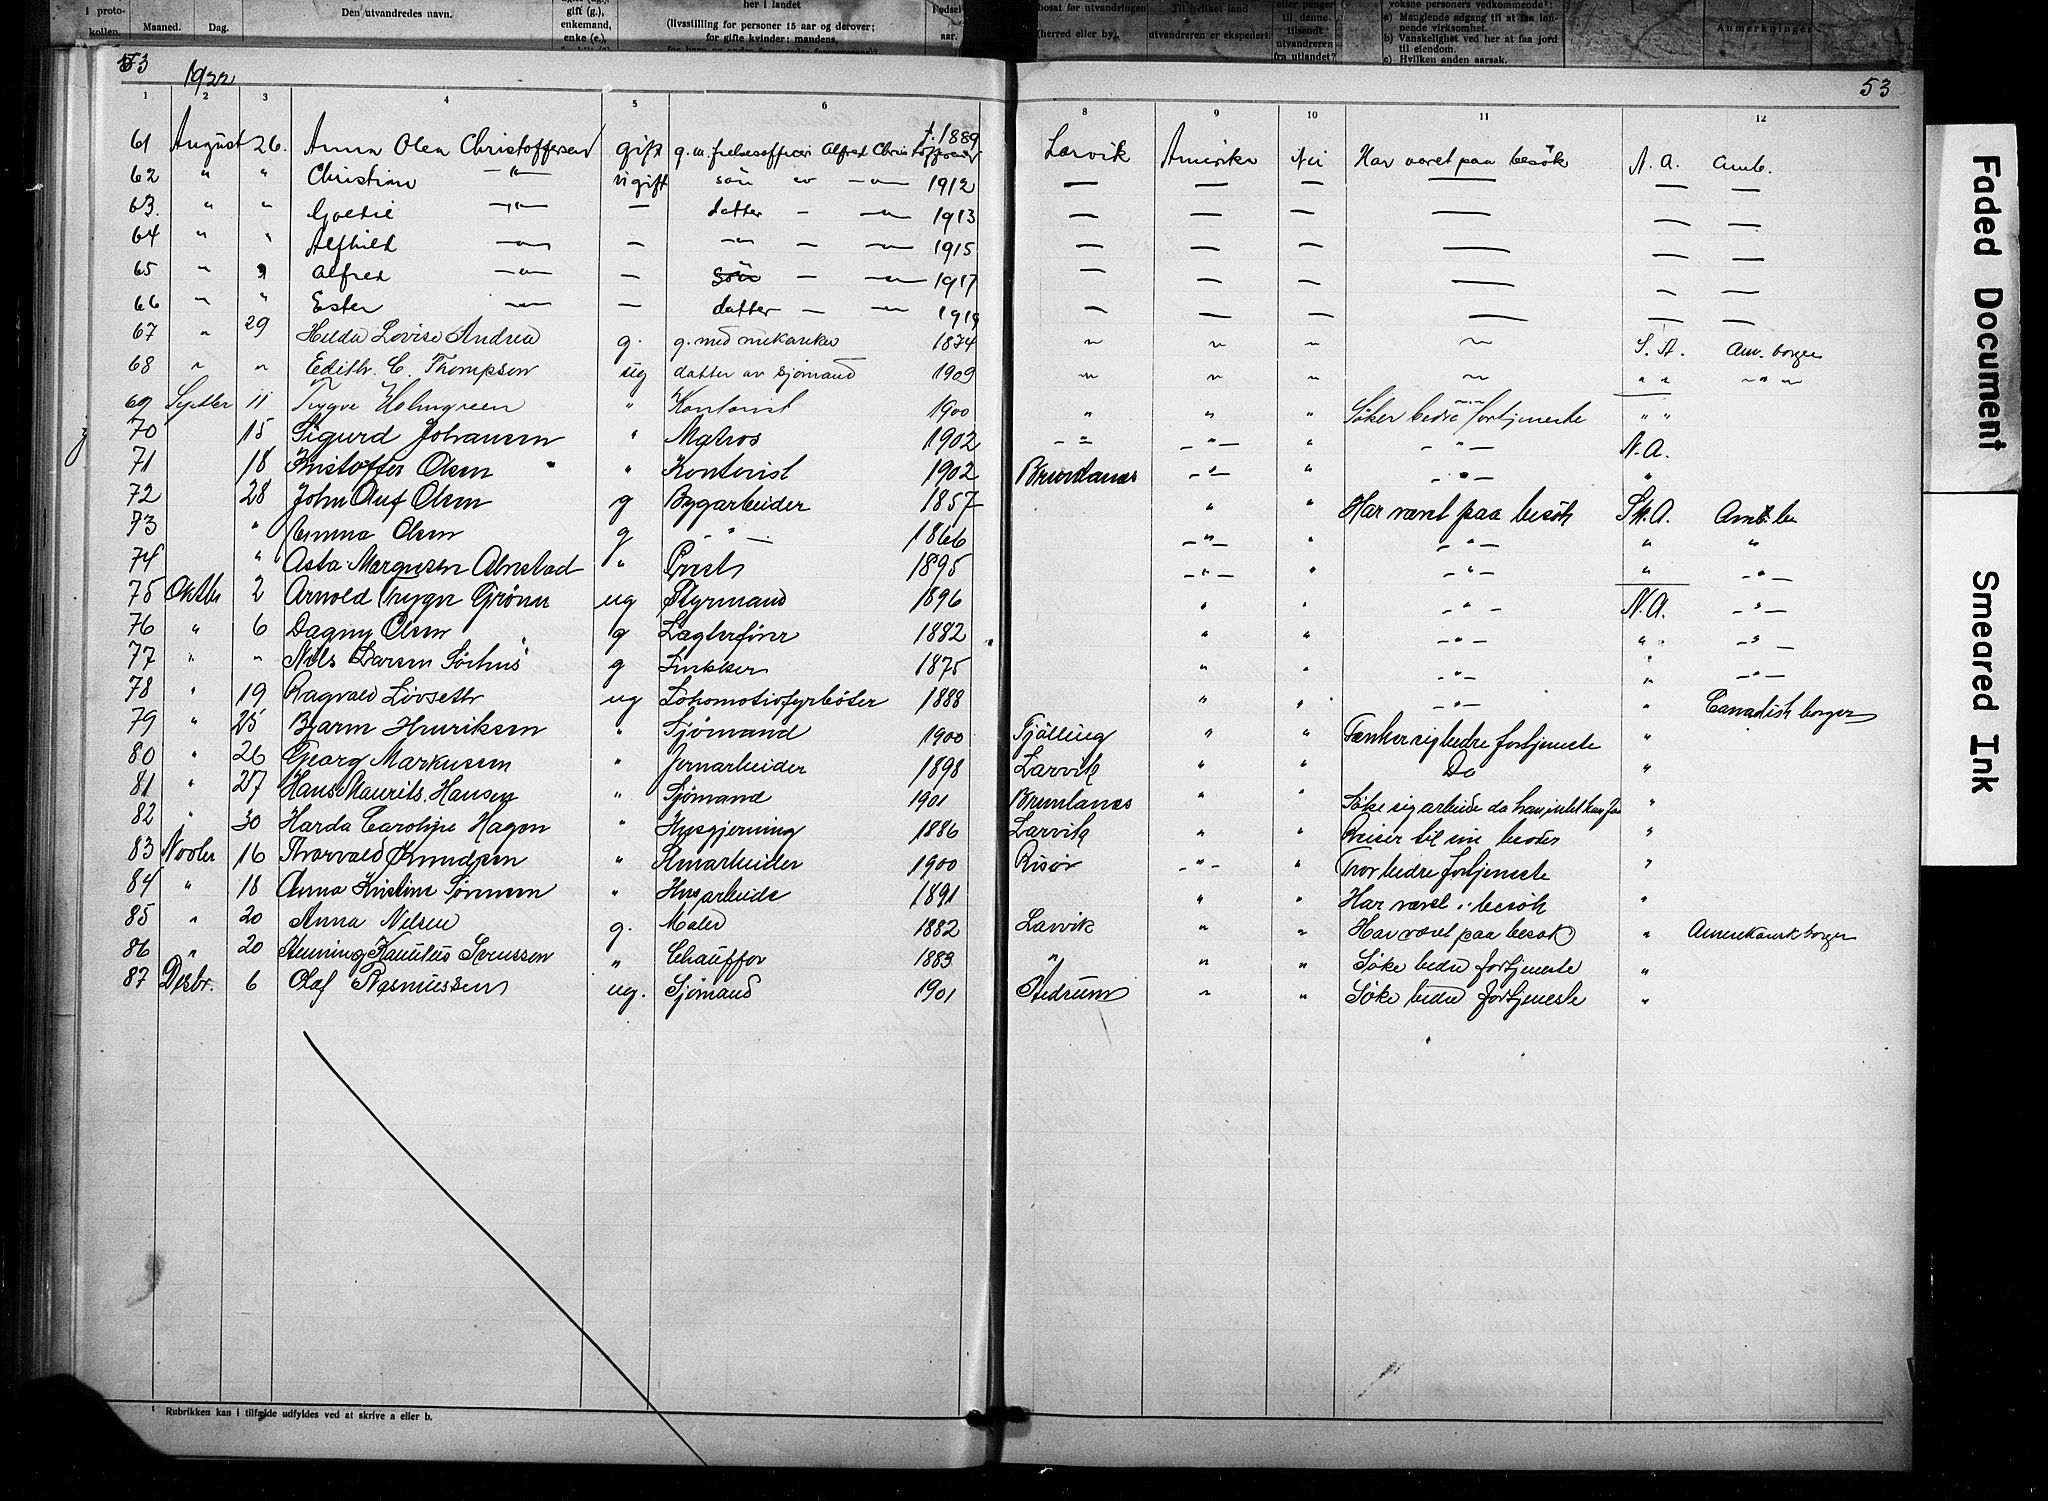 i proto-
kollen.
Maaned. Dag.
Den utvandredes navn.
gift (g.),
enkemand,
enke (e.),
her i landet
(livsstilling for personer 15 aar og derover;
for gifte kvinder: mandens,
Fødsel
aar.
bosat før utvandringen
(herred eller by),
Til hvilket land
utvandreren er ekspedert.
eller penger
til denne
tilsendt
utvandreren
fra utlandet?
voksne personers vedkommende¹:
a) Manglende adgang til at faa løn-
nende virksomhet.
b) Vanskelighet ved her at faa jord
til eiendom.
c) Hvilken anden aarsak.
Anmerkninger
53 1922 53
1 2 3 4 5 6 8 9 10 11 12
61 August 26. Anna Olea Christoffersen gift g. m. frelsesofficer Alfred Christoffersen f. 1889 Larvik Amerika Nei Har været paa besøk N. A. Amb.
62 " " Christian —"— ugift søn av —"— 1912 — — — — — —
63. " " —"— — datter — —"— 1913 — — — — — —
64 " " Alfhild —"— — —"— — —"— 1915 — — — — — —
65 " " Alfred —"— — søn — —"— 1917 — — — — — —
66 " " Ester —"— — datter — —"— 1919 — — — — — —
67 " 29 Hilda Lovise Andrea g. g. med mekaniker 1874 " " " " S. A. Am. borger
68 " " Edith. C. Thompson ug datter av sjömand 1909 " " " " " " " " "
69 Septbr 11 Trygve Holmgreen " Kontorist 1900 " " " Söker bedre fortjeneste " "
70 15 Sigurd Johansen " Matros 1902 -"- -"- " -"- N. A.
71 18 Kristoffer Olsen " Kontorist 1902 Brunlanes -"- " -"- "
72 28 John Oluf Olsen g Bygarbeider 1857 " " Har været paa besøk Sk. A.
73 " Emma Olsen g -"- 1866 -"- " -"- " "
74 " Asta Margusen Almstad " 1895 -"- " -"- " -"-
75 Oktbr 2 Arnold Trygve Grönn ug Styrmand 1896 " " -"- N. A. -"-
76 " 6 Dagny Olsen g Lægterfører 1882 " " -"- " -"-
77 " " Nils Larsen Sörhus g Snekker 1875 " " -"- " -"-
78 " 19 Ragvald Lövseth ug Lokomotivfyrböter 1888 " " -"- " Canadisk borger
79 " 25 Bjarne Henriksen " Sjömand 1900 Tjölling " " Tænker sig bedre fortjeneste "
80 " 26 Georg Markussen " Jernarbeider 1898 Larvik " " Do "
81 " 27 Hans Maurits. Hansen " Sjömand 1901 Brunlanes " " Søke sig arbeide da han intet kan faa "
82 " 30 Harda Caroline Hagen " Husgjerning 1886 Larvik " " Reiser til sin broder "
83 Novbr 16 Thorvald Knudsen " Stenarbeider 1900 Risör "- " Tror bedre fortjeneste "
84 " 18 Anna Kristine Sørensen " Husarbeide 1891 " " Har været i besøk "
85 " 20 Anna Nelsen g. Maler 1882 Larvik " " Har været paa besøk " Amerikansk borger
86 " 20 Henning Svensson " Chauffør 1883 " " " Søke bedre fortjeneste "
87 Desbr. 6 Olaf Rasmussen ug. Sjömand 1901 Hedrum " " Søke bedre fortjeneste "
¹ Rubrikken kan i tilfælde udfyldes ved at skrive a eller b.
Faded Document
Smeared Ink